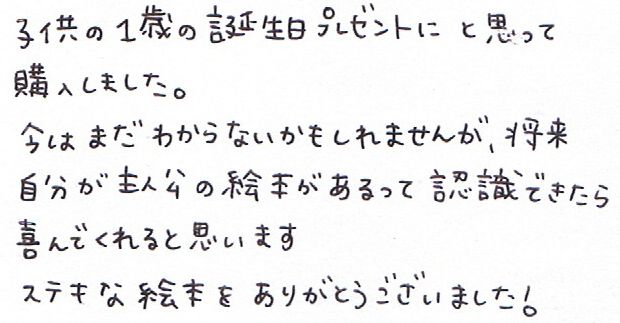 子供の1歳の誕生日プレゼントにと思って
購入しました。
今はまだわからないかもしれませんが、将来
自分が主人公の絵本があるって認識できたら
喜んでくれると思います
ステキな絵本をありがとうございました!